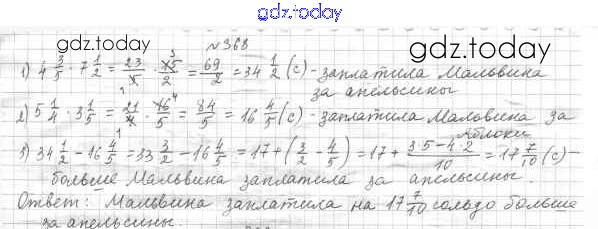 gdz.today
№368
gdz.today
gdz.today
1) 4 3/5 · 7 1/2 = 23/5 · 15/2 = 69/2 = 34 1/2 (с) - заплатила Мальвина
за апельсины
2) 5 1/4 · 3 1/5 = 21/4 · 16/5 = 84/5 = 16 4/5 (с) - заплатила Мальвина за
яблоки
3) 34 1/2 - 16 4/5 = 33 3/2 - 16 4/5 = 17 + (3/2 - 4/5) = 17 + 3·5-4·2/10 = 17 7/10 (с) -
больше Мальвина заплатила за апельсины.
Ответ: Мальвина заплатила на 17 7/10 сольдо больше
за апельсины.